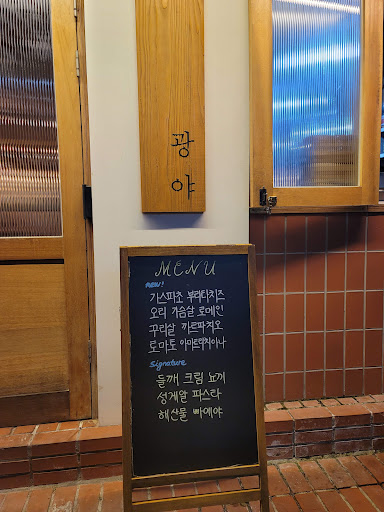 광
야
MENU
new!
가스파쵸 부라타치즈
오리 가슴살 로메인
꾸리살 까르파치오
로마토 아마트리치아나
Signature
들깨 크림 뇨끼
성게알 파스타
해산물 빠에야